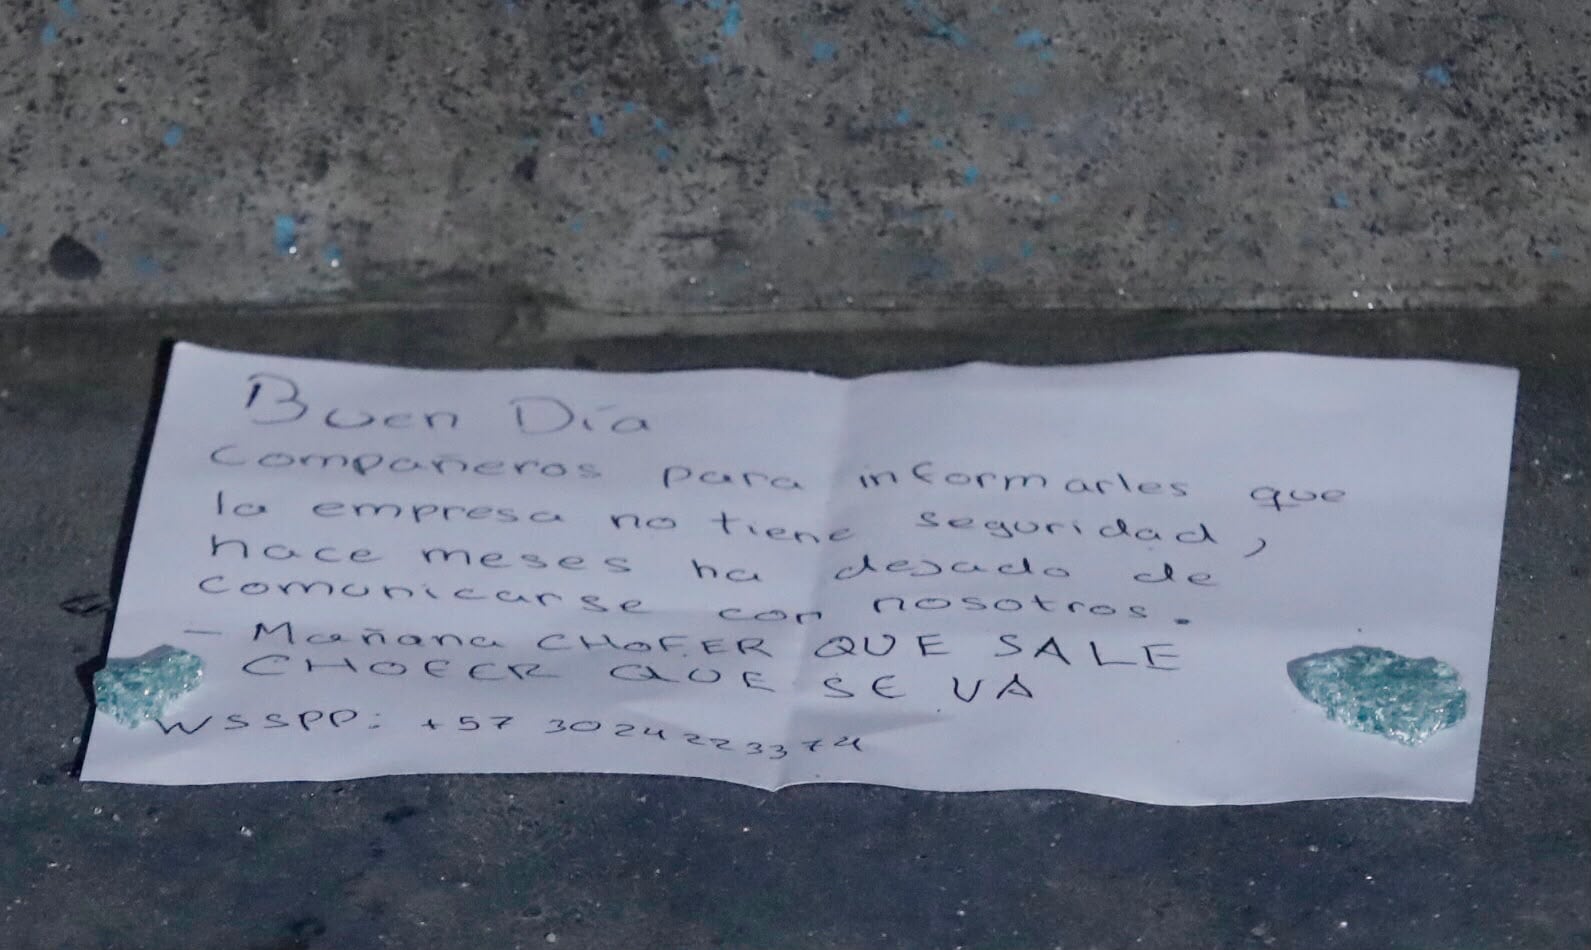 Buen Día
Compañeros para informarles que
la empresa no tiene seguridad,
hace meses ha dejado de
comunicarse con nosotros.
- Mañana CHOFER QUE SALE
CHOFER QUE SE VA
WSSPP: +57 3024223374